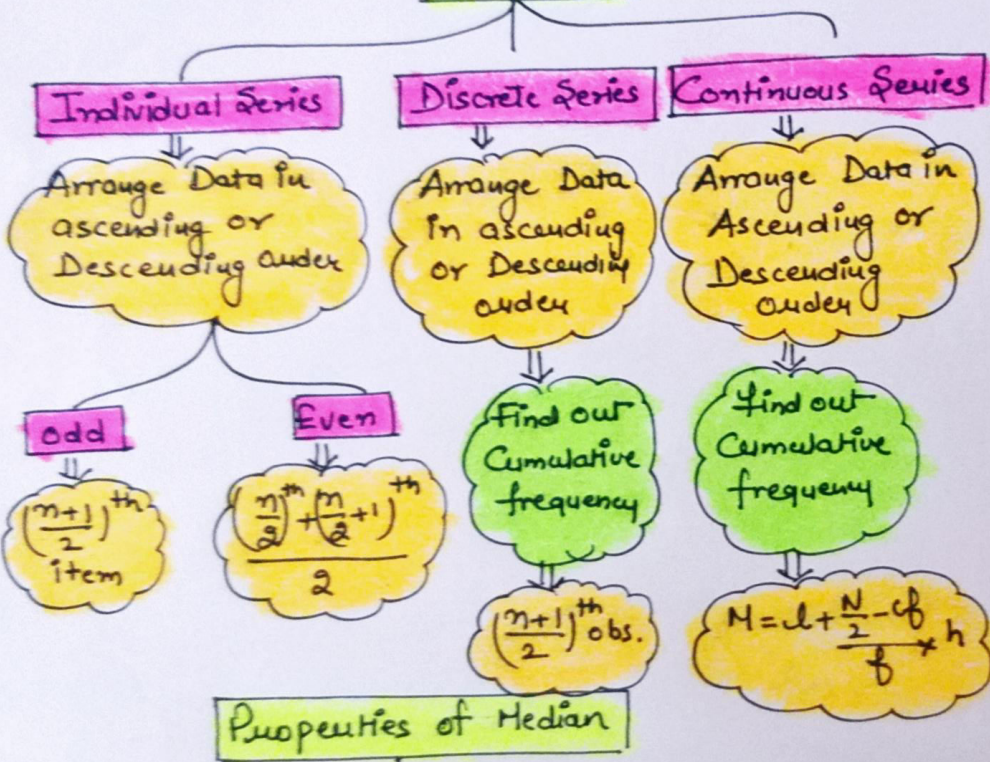 Individual Series
Arrange Data in
ascending or
Descending order
Odd
(n+1/2)th
item
Even
(n/2)th+(n/2+1)th
2
Discrete Series
Arrange Data
in ascending
or Descending
order
Find out
Cumulative
frequency
(n+1/2)th obs.
Continuous Series
Arrange Data in
Ascending or
Descending
order
find out
Cumulative
frequency
M = l + N/2 - cf / f × h
Properties of Median